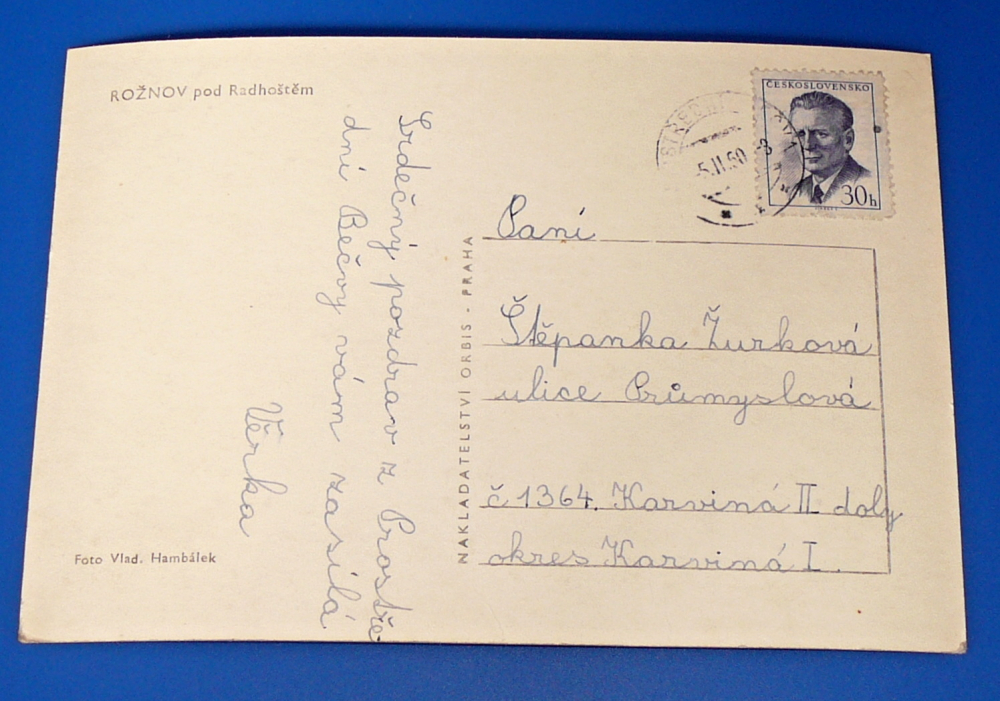 ROŽNOV pod Radhoštěm
Srdečný pozdrav z Prostře
dní Bečvy vám zasílá
Věrka
Foto Vlad. Hambálek
NAKLADATELSTVÍ ORBIS - PRAHA
ČESKOSLOVENSKO
30h
-5.II.60
Paní
Štěpanka Žurková
ulice Průmyslová
č 1364. Karviná II doly
okres Karviná I.